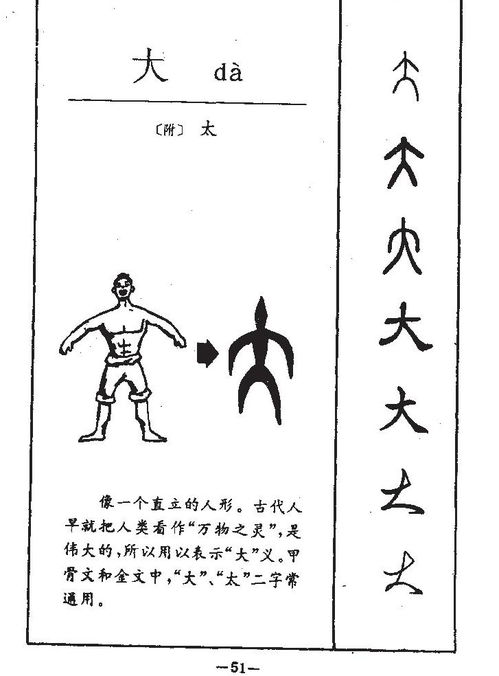 大 dà
〔附〕 太
像一个直立的人形。古代人
早就把人类看作“万物之灵”,是
伟大的,所以用以表示“大”义。甲
骨文和金文中,“大”、“太”二字常
通用。
大
大
大
大
大
大
大
—51—